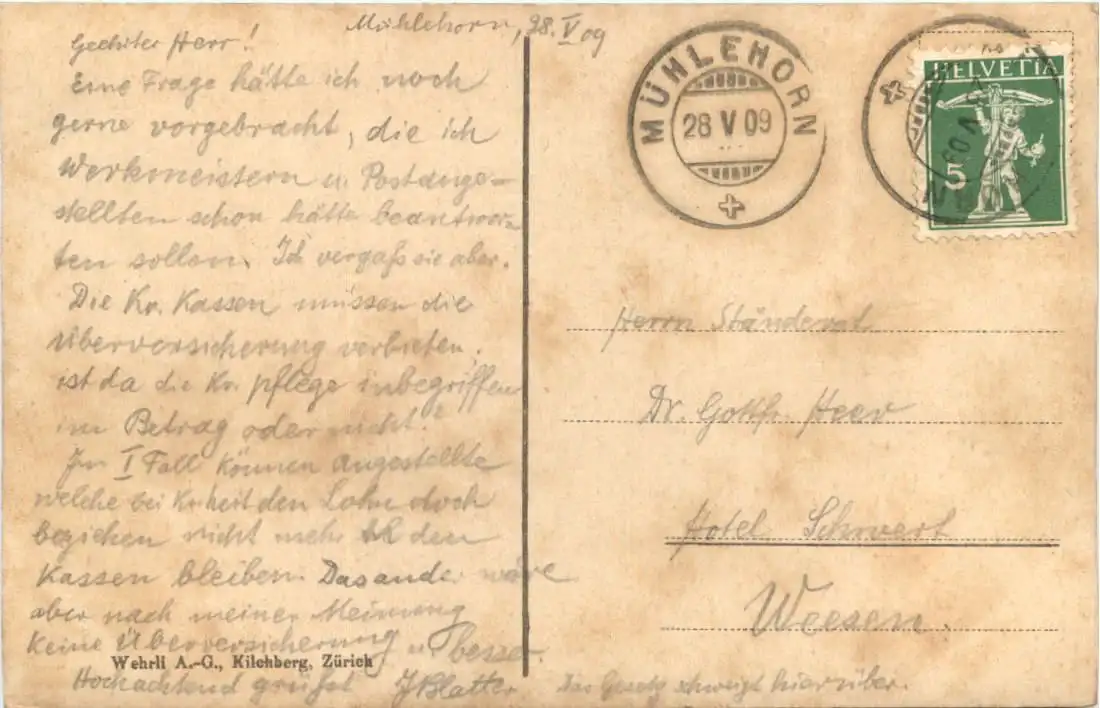 Mühlehorn, 28. V 09
Geehrter Herr!
Eine Frage hätte ich noch
gerne vorgebracht, die ich
Werkmeistern u. Postange-
stellten schon hätte beantwor-
ten sollen. Ich vergaß sie aber.
Die Kr. Kassen müssen die
Überversicherung verbieten,
ist da die Kr. pflege inbegriffen
im Betrag oder nicht?
Im I Fall können Angestellte
welche bei Kr.heit den Lohn doch
beziehen nicht mehr den
Kassen bleiben. Das ander wäre
aber nach meiner Meinung
keine Überversicherung u. besser.
Hochachtend grüßt J Blatter
Das Gesetz schweigt hierüber.
Wehrli A.-G., Kilchberg, Zürich
MÜHLEHORN
28 V 09
HELVETIA
5
Herrn Ständerat
Dr. Gottfr. Heer
Hotel Schwert
Weesen.